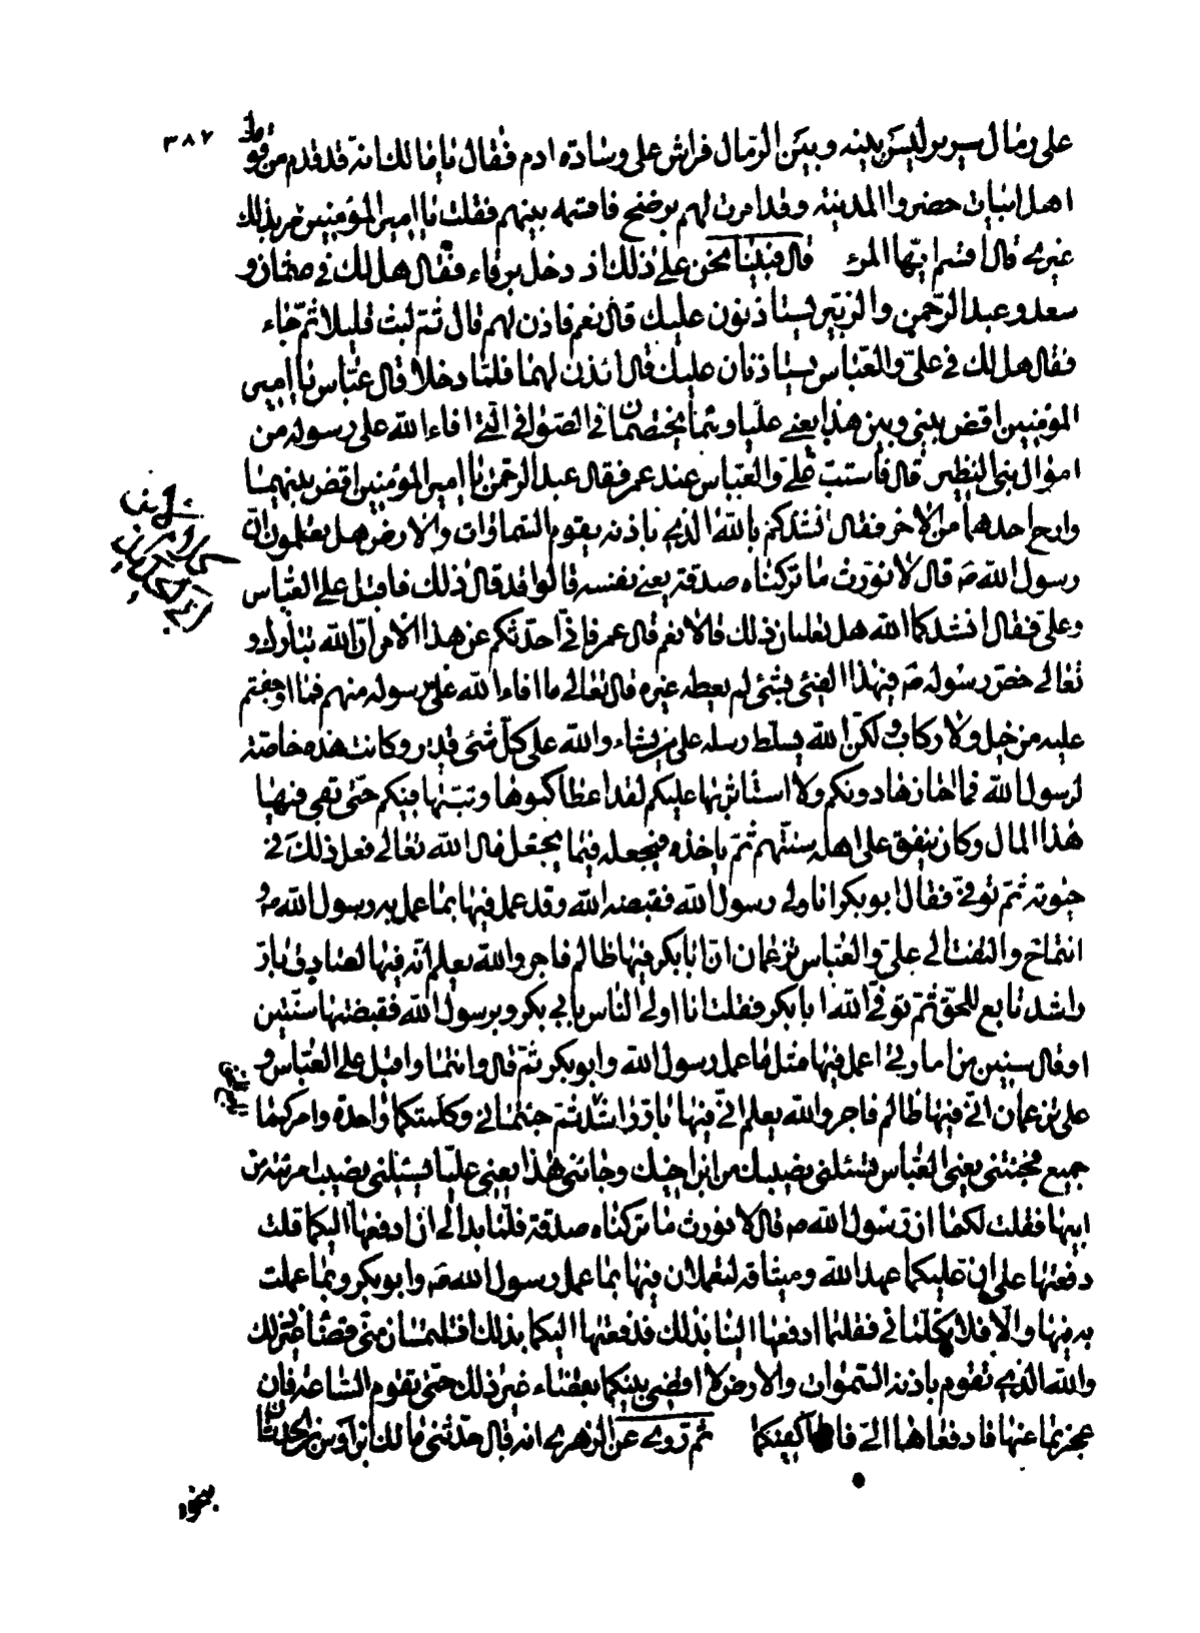 ٣٨٧
على رمال سرير ليس بينه وبين الرمال فراش على وسادة ادم فقال يا مالك انه قد قدم من قومك
اهل ابيات حضروا المدينة وقد امرت لهم برضخ فاقسمه بينهم فقلت يا امير المؤمنين مر بذلك
غيرى قال اقسم ايّها المرء قال فبينا نحن على ذلك اذ دخل يرفاء فقال هل لك فى عثمان و
سعد و عبد الرّحمن والزبير يستاذنون عليك قال نعم فاذن لهم قال ثمّ لبث قليلا ثمّ جاء
فقال هل لك فى علىّ والعّباس يستاذنان عليك قال ائذن لهما فلمّا دخلا قال عبّاس يا امير
المؤمنين اقض بينى وبين هذا يعنى عليّا وهما يختصمان فى الصّوافى الّتى افاء الله على رسوله من
اموال بنى النظير قال فاستبّ علىّ والعبّاس عند عمر فقال عبد الرّحمن يا امير المؤمنين اقض بينهما
وارح احدهما من الاخر فقال انشدكم بالله الذى باذنه يقوم السّماوات والارض هل تعلمون انّ
رسول الله ص قال لا نورث ما تركناه صدقة يعنى نفسه قالوا قد قال ذلك فاقبل على العبّاس
وعلىّ فقال انشدكما الله هل تعلمان ذلك قالا نعم قال عمر فانّى احدّثكم عن هذا الامر انّ الله تبارك و
تعالى خصّ رسوله ص فى هذا الفيئى بشئى لم يعطه غيره قال تعالى ما افاء الله على رسوله منهم فما اوجفتم
عليه من خيل ولا ركاب ولكنّ الله يسلّط رسله على من يشاء والله على كلّ شئى قدير وكانت هذه خاصّة
لرسول الله فما اختازها دونكم ولا استاثر بها عليكم لقد اعطاكموها وثبّتها فيكم حتّى بقى منها
هذا المال وكان ينفق على اهله سنتهم ثمّ ياخذه فيجعله فيما يجعل مال الله تعالى فعل ذلك فى
حيوته ثمّ توفّى فقال ابو بكر انا ولى رسول الله فقبضه الله وقد عمل فيها بما عمل به رسول الله ص و
انتما ح والتفت الى علىّ والعبّاس تزعمان انّ ابا بكر فيها ظالم فاجر والله يعلم انّه فيها لصادق بارّ
راشد تابع للحقّ ثمّ توفّى الله ابا بكر فقلت انا اولى الناس بابى بكر وبرسول الله فقبضتها سنتين
او قال سنين من امارتى اعمل فيها مثل ما عمل رسول الله وابو بكر ثمّ قال وانتما واقبل على العبّاس و
على تزعمان انّى فيها ظالم فاجر والله يعلم انّى فيها بارّ راشد ثمّ جئتمانى وكلمتكما واحدة وامركما
جميع فجئتنى يعنى العبّاس تسئلنى نصيبك من ابن اخيك وجائنى هذا يعنى عليّا يسئلنى نصيب امرئته من
ابيها فقلت لكما انّ رسول الله ص قال لا نورث ما تركناه صدقة فلمّا بدا لى ان ادفعها اليكما قلت
دفعتها على ان عليكما عهد الله وميثاقه لتعملان فيها بما عمل رسول الله ص وابو بكر وبما عملت
به فيها والّا فلا تكلّمانى فقلتما ادفعها الينا بذلك فدفعتها اليكما بذلك افتلتمسان منّى قضاء غير ذلك
والله الذى تقوم باذنه السّموات والارض لا اقضى بينكما بقضاء غير ذلك حتّى تقوم السّاعة فان
عجزتما عنها فادفعاها الىّ فانا اكفيكما ثم روى عن الزهرى انه قال حدّثنى مالك بن اوس بن الحدثان
بنحو